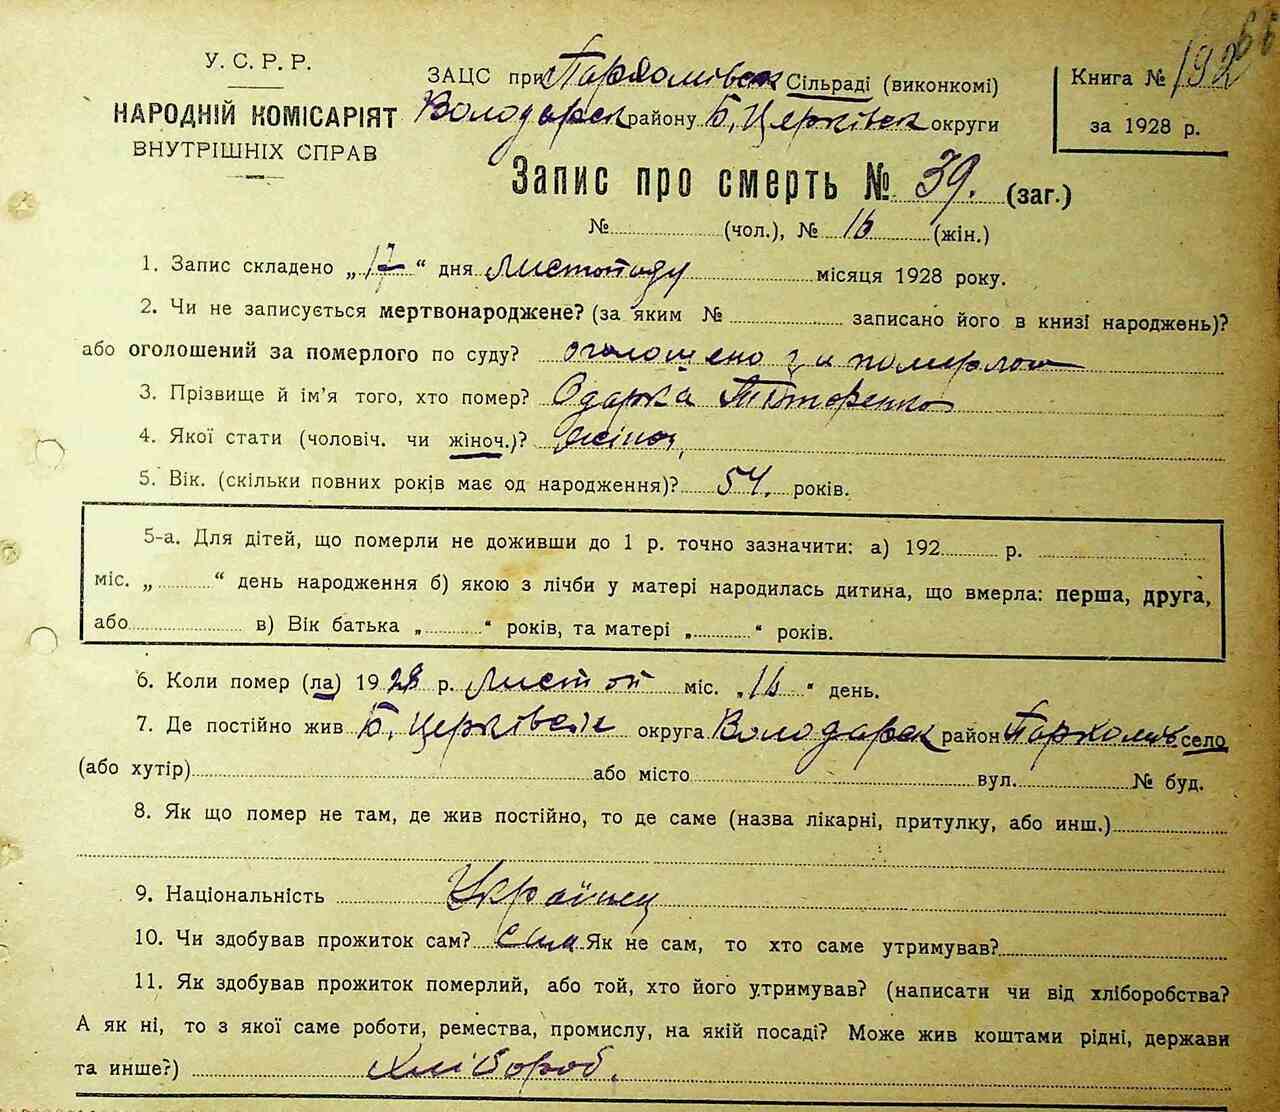 192
У. С. Р. Р.
НАРОДНІЙ КОМІСАРІЯТ
ВНУТРІШНІХ СПРАВ
ЗАЦС при Пархомівськ Сільраді (виконкомі)
Володарськ району Б. Церківськ округи
Книга №
за 1928 р.
Запис про смерть № 39. (заг.)
№ (чол.), № 16 (жін.)
1. Запис складено „17“ дня Листопаду місяця 1928 року.
2. Чи не записується мертвонароджене? (за яким № записано його в книзі народжень)?
або оголошений за померлого по суду? оголошено за померлого
3. Прізвище й ім'я того, хто помер? Одарка Тіторенко
4. Якої стати (чоловіч. чи жіноч.)? жіноч.
5. Вік. (скільки повних років має од народження)? 54. років.
5-а. Для дітей, що померли не доживши до 1 р. точно зазначити: а) 192 р.
міс. „ “ день народження б) якою з лічби у матері народилась дитина, що вмерла: перша, друга,
або в) Вік батька „ “ років, та матері „ “ років.
6. Коли помер (ла) 1928 р. Листоп міс. „16“ день.
7. Де постійно жив Б. Церківськ округа Володарськ район Пархомів село
(або хутір) або місто вул. № буд.
8. Як що помер не там, де жив постійно, то де саме (назва лікарні, притулку, або инш.)
9. Національність Українец
10. Чи здобував прожиток сам? сам Як не сам, то хто саме утримував?
11. Як здобував прожиток померлий, або той, хто його утримував? (написати чи від хліборобства?
А як ні, то з якої саме роботи, ремества, промислу, на якій посаді? Може жив коштами рідні, держави
та инше?) Хлібороб.